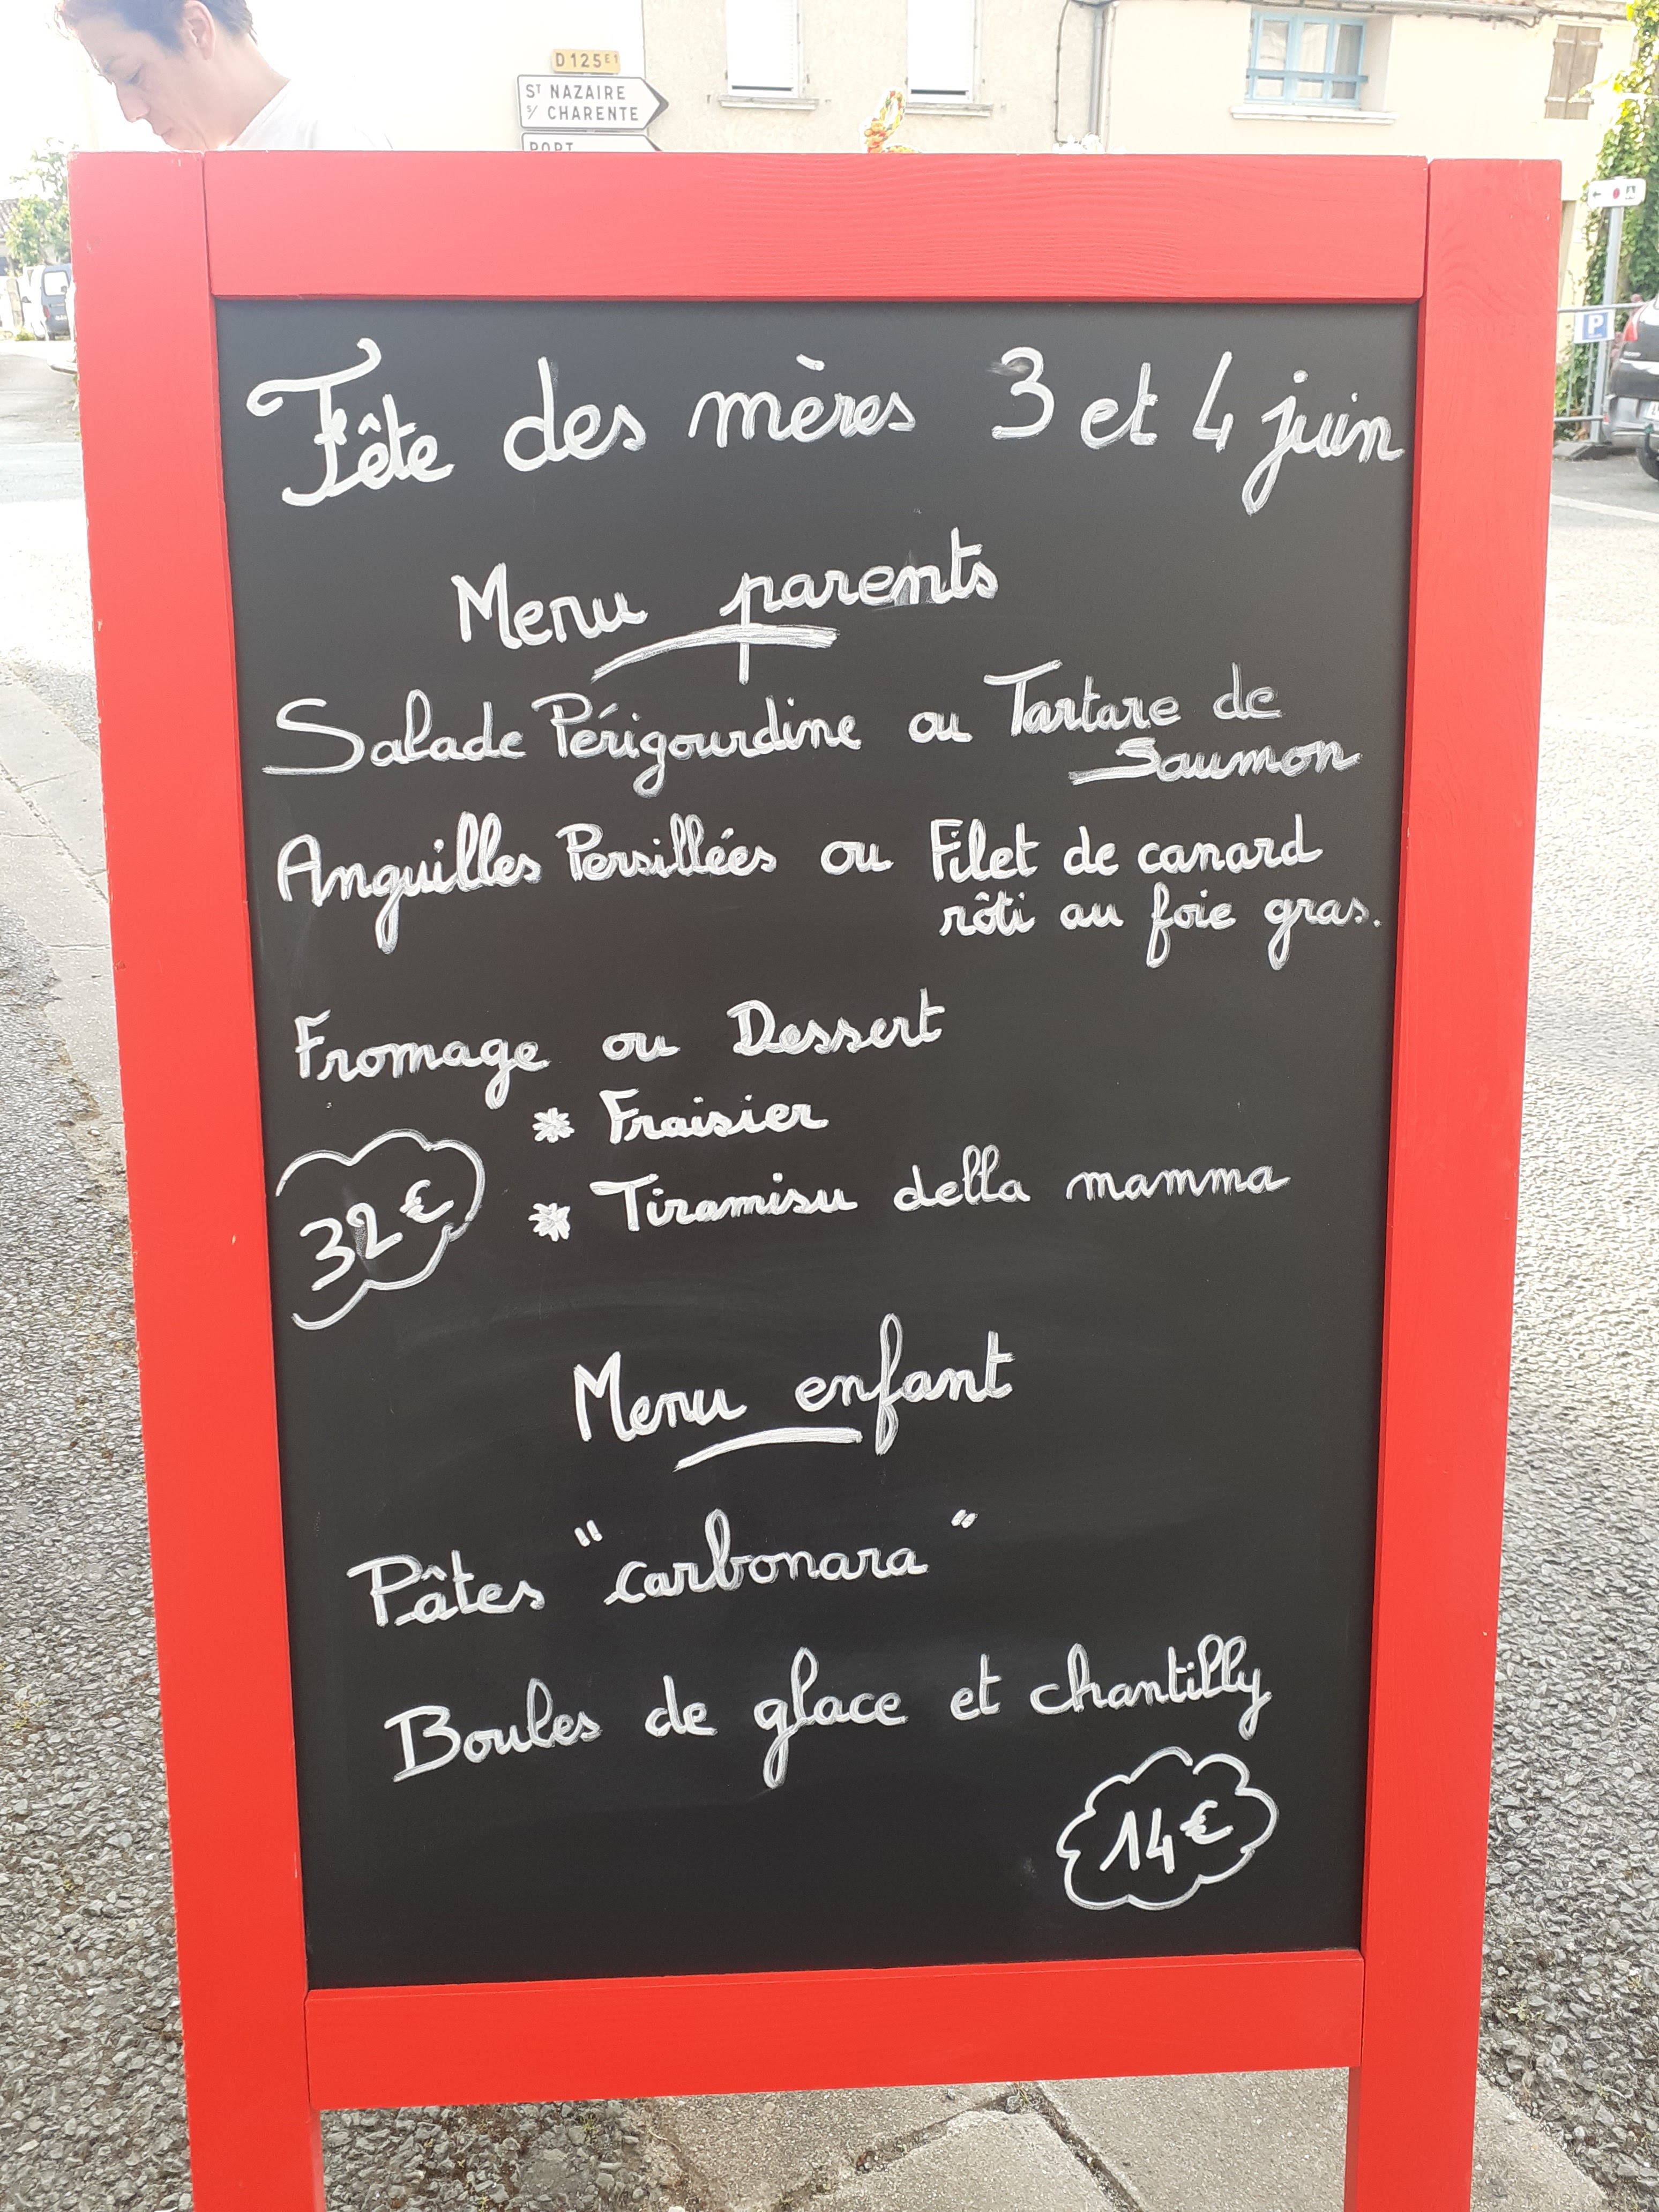 D 125E1
ST NAZAIRE
S/ CHARENTE
PORT
P
Fête des mères 3 et 4 juin
Menu parents
Salade Périgourdine ou Tartare de
Saumon
Anguilles Persillées ou Filet de canard
rôti au foie gras.
Fromage ou Dessert
* Fraisier
* Tiramisu della mamma
32€
Menu enfant
Pâtes "carbonara"
Boules de glace et chantilly
14€